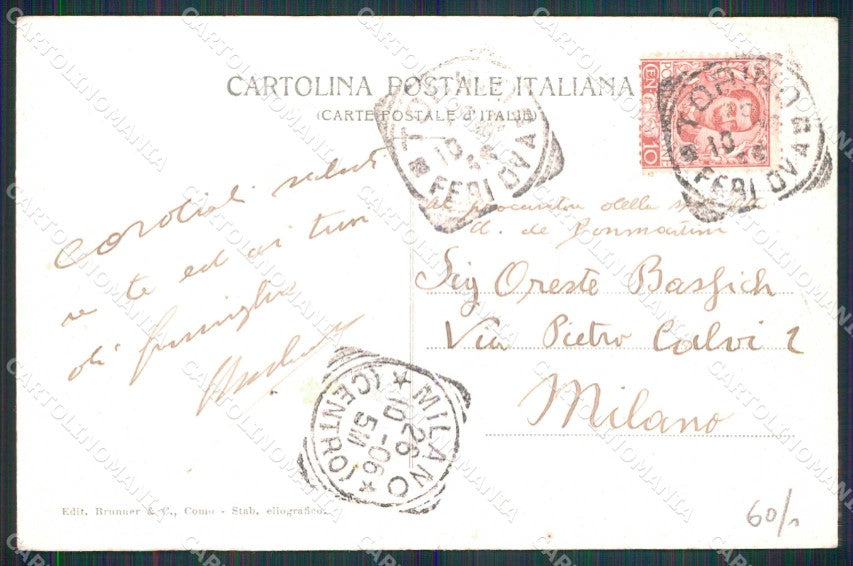 CARTOLINA POSTALE ITALIANA
(CARTE POSTALE d'ITALIE)
cordiali saluti
a te ed ai tuoi
di famiglia
al procuratore della
d. de
Sig Oreste
Via Pietro Calvi 2
Milano
TORINO
FERROVIA
10
TORINO
FERROVIA
10
CENT. 10
MILANO
10 26 -06
5M
(CENTRO)
Edit. Brunner & C., Como - Stab. eliografico.
60/1
CARTOLINOMANIA